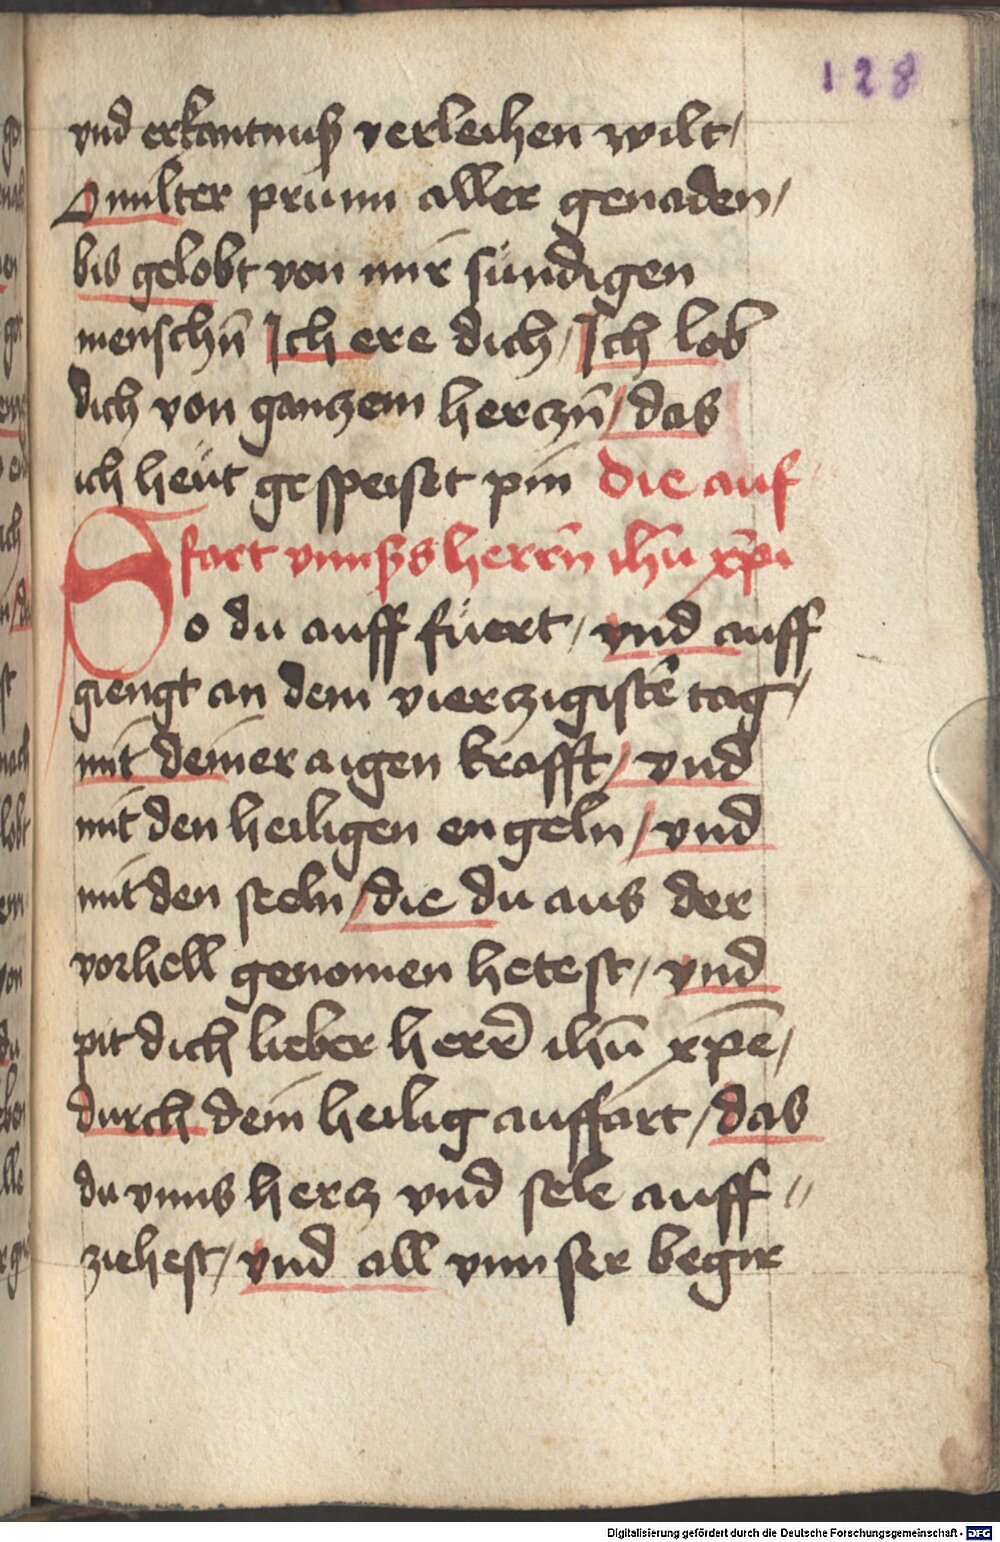 128
vnd erkantnuß verleihen wilt /
O milter prunn aller genaden /
bis gelobt von mir sündigen
menschn̄ Ich ere dich / Ich lob
dich von ganczem herczn̄ / das
ich heüt gespeiset pin die auf
fart vnnsers herrn̄ ih̄u xp̄i
So du auff füert / vnd auff
giengt an dem vierzigistē tag /
mit deiner aigen krafft / vnd
mit den heiligen engeln / vnd
mit den seeln / die du aus der
vorhell genomen hetest / vnd
pit dich lieber herr̄ ih̄u xp̄e /
durch dein heilig auffart / das
du vnns hercz vnd sele auff //
ziehest / vnd all vnnser begir
Digitalisierung gefördert durch die Deutsche Forschungsgemeinschaft - DFG